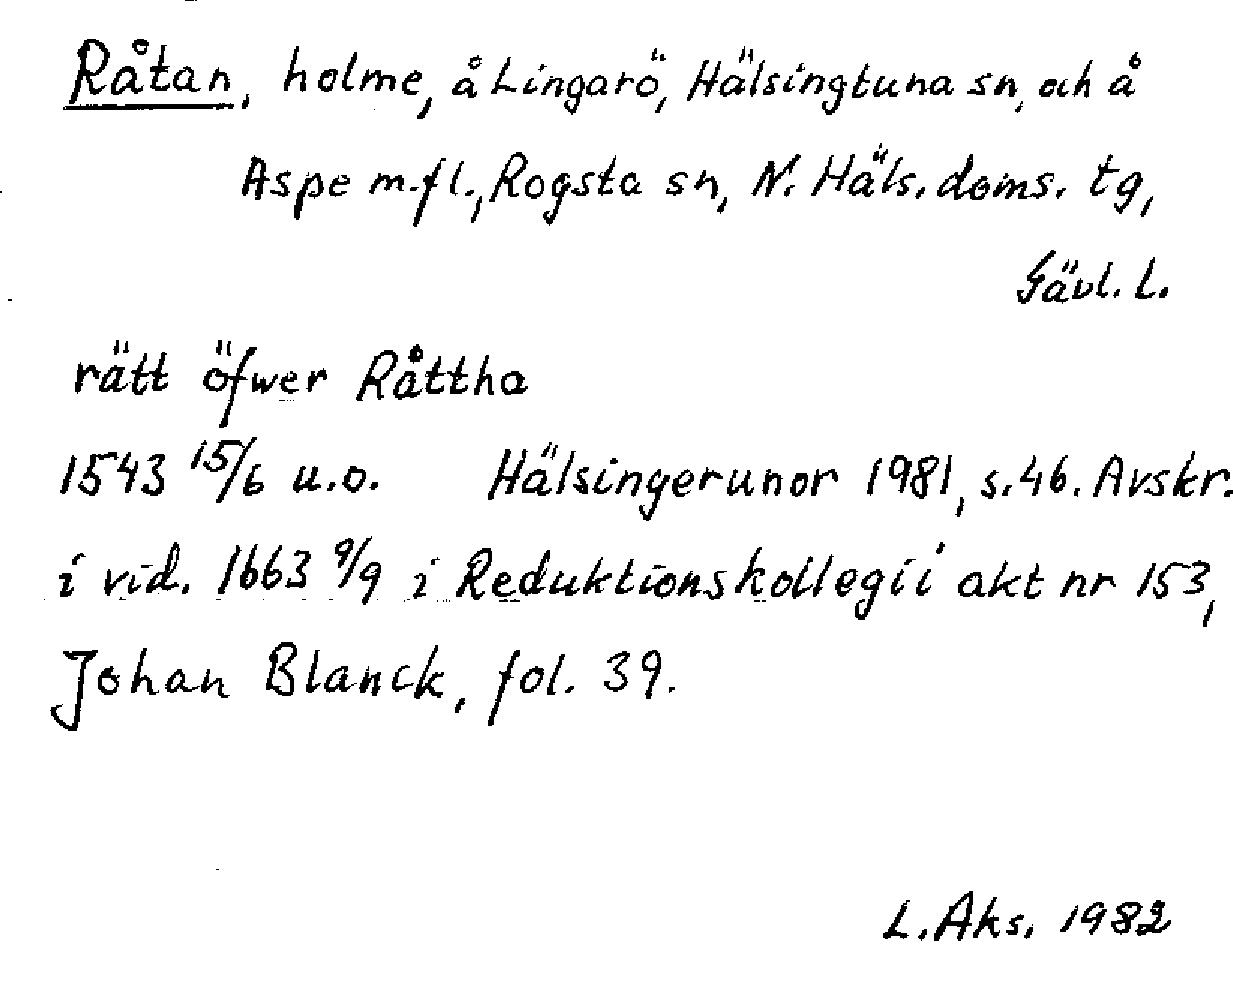 Råtan, holme, å Lingarö, Hälsingtuna sn, och å
Aspe m.fl., Rogsta sn, N. Häls. doms. tg,
Gävl. l.
rätt öfwer Råttha
1543 15/6 u.o. Hälsingerunor 1981, s. 46. Avskr.
i vid. 1663 9/9 i Reduktionskollegii akt nr 153,
Johan Blanck, fol. 39.
L. Aks. 1982